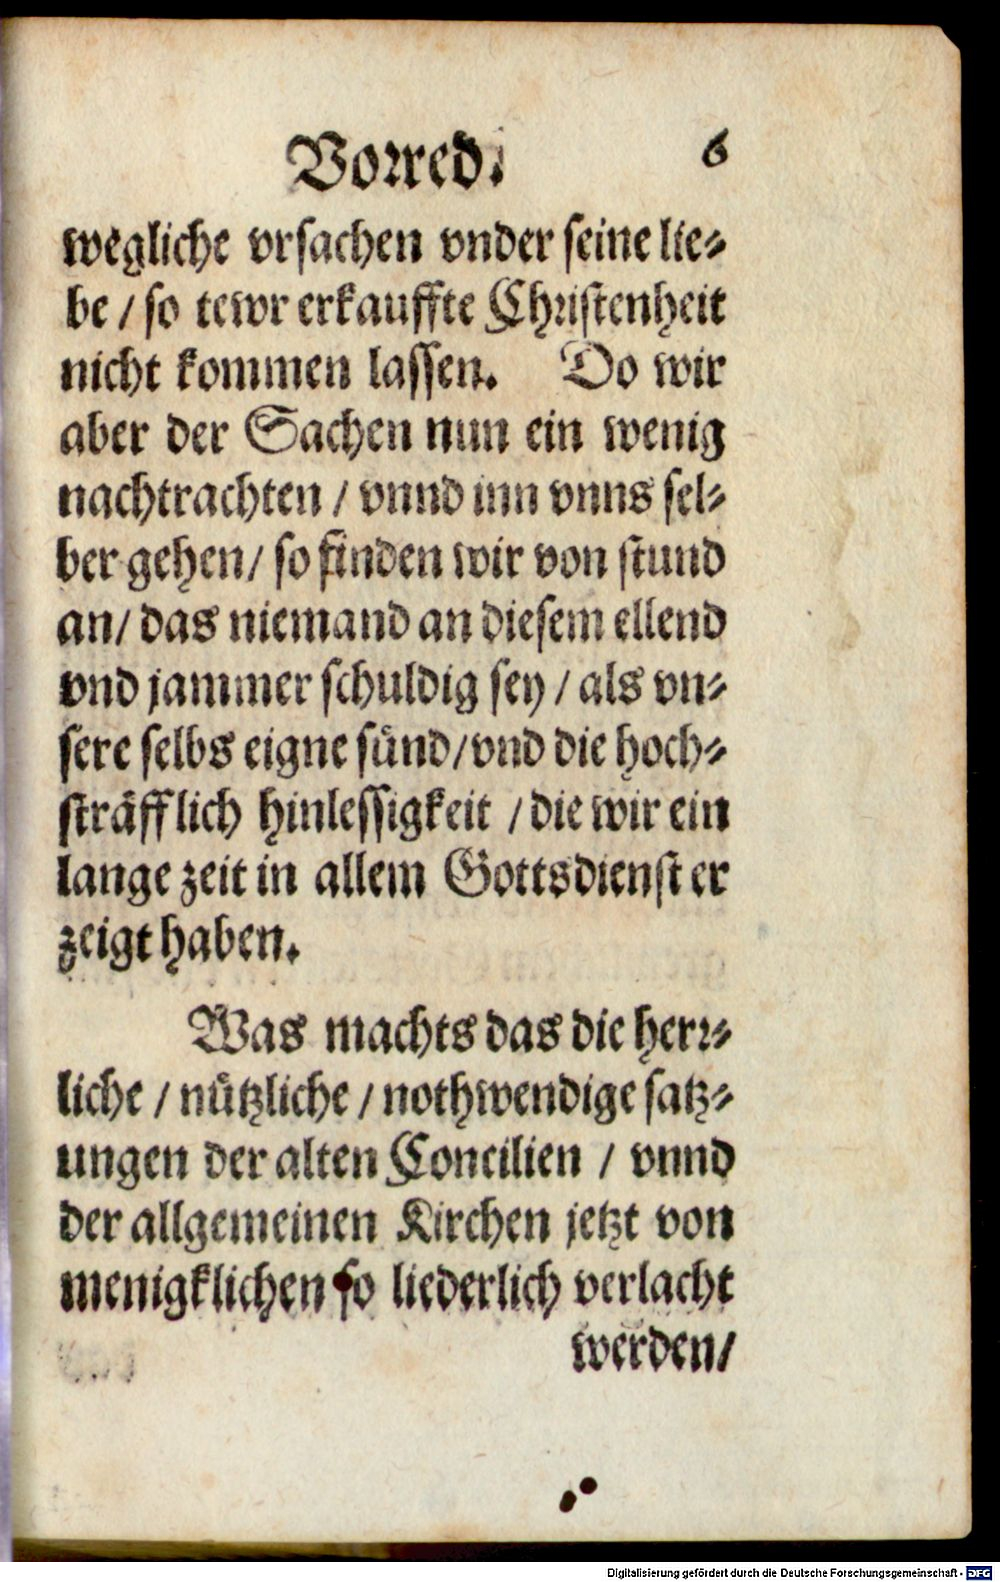 Vorred. 6
wegliche vrsachen vnder seine lie-
be / so tewr erkauffte Christenheit
nicht kommen lassen. Do wir
aber der Sachen nun ein wenig
nachtrachten / vnnd inn vnns sel-
ber gehen / so finden wir von stund
an / das niemand an diesem ellend
vnd jammer schuldig sey / als vn-
sere selbs eigne sünd / vnd die hoch-
sträfflich hinlessigkeit / die wir ein
lange zeit in allem Gottsdienst er
zeigt haben.
Was machts das die herr-
liche / nützliche / nothwendige satz-
ungen der alten Concilien / vnnd
der allgemeinen Kirchen jetzt von
menigklichen so liederlich verlacht
werden /
Digitalisierung gefördert durch die Deutsche Forschungsgemeinschaft - DFG